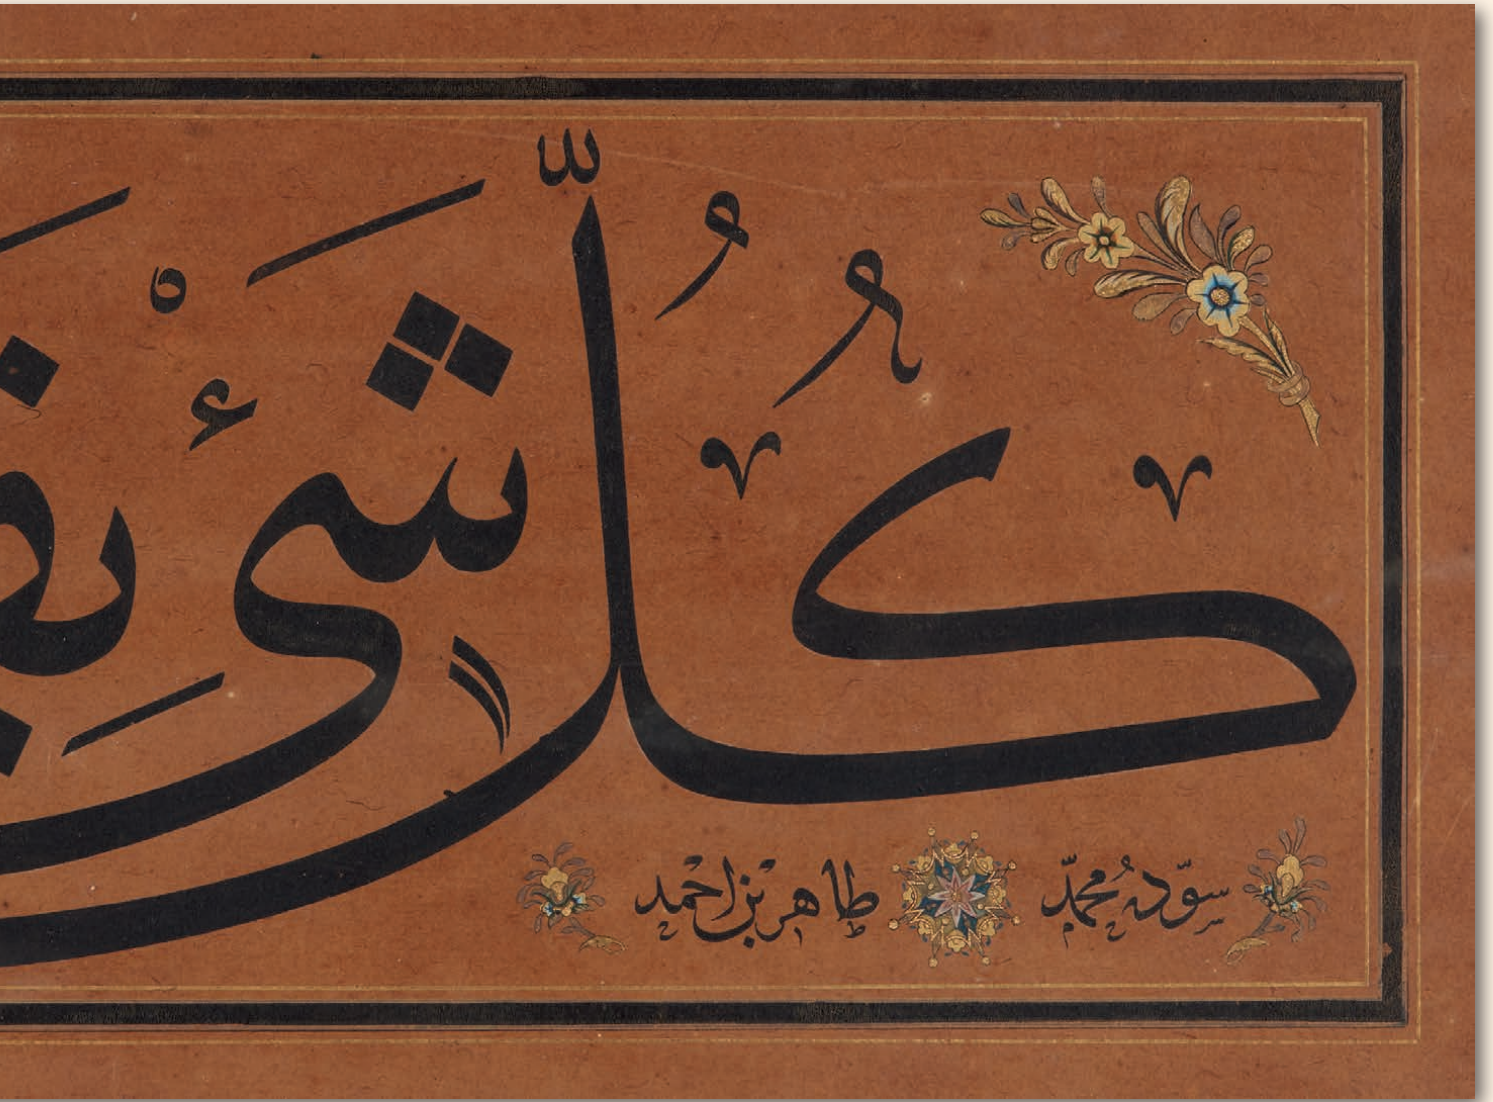 كُلُّ شَیْئٍ
سوّدهُ محمّد طاهر بن احمد